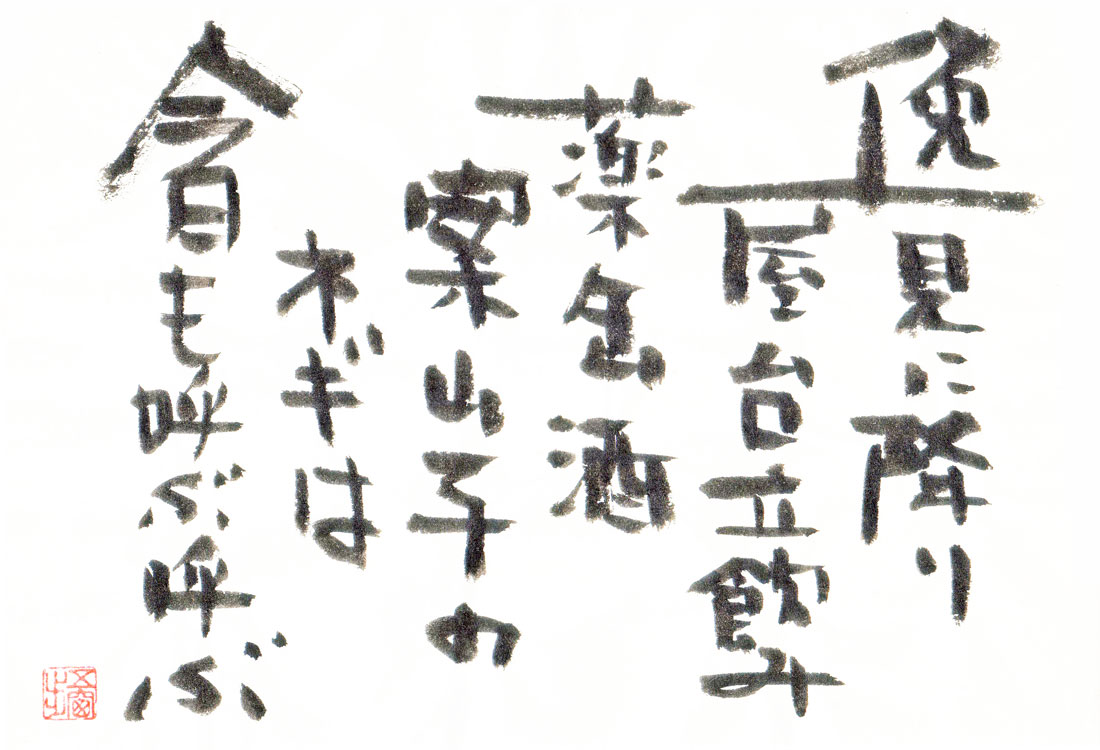 見に降り
屋台立飲み
薬缶酒
案山子の
ネギは
今日も呼ぶ呼ぶ